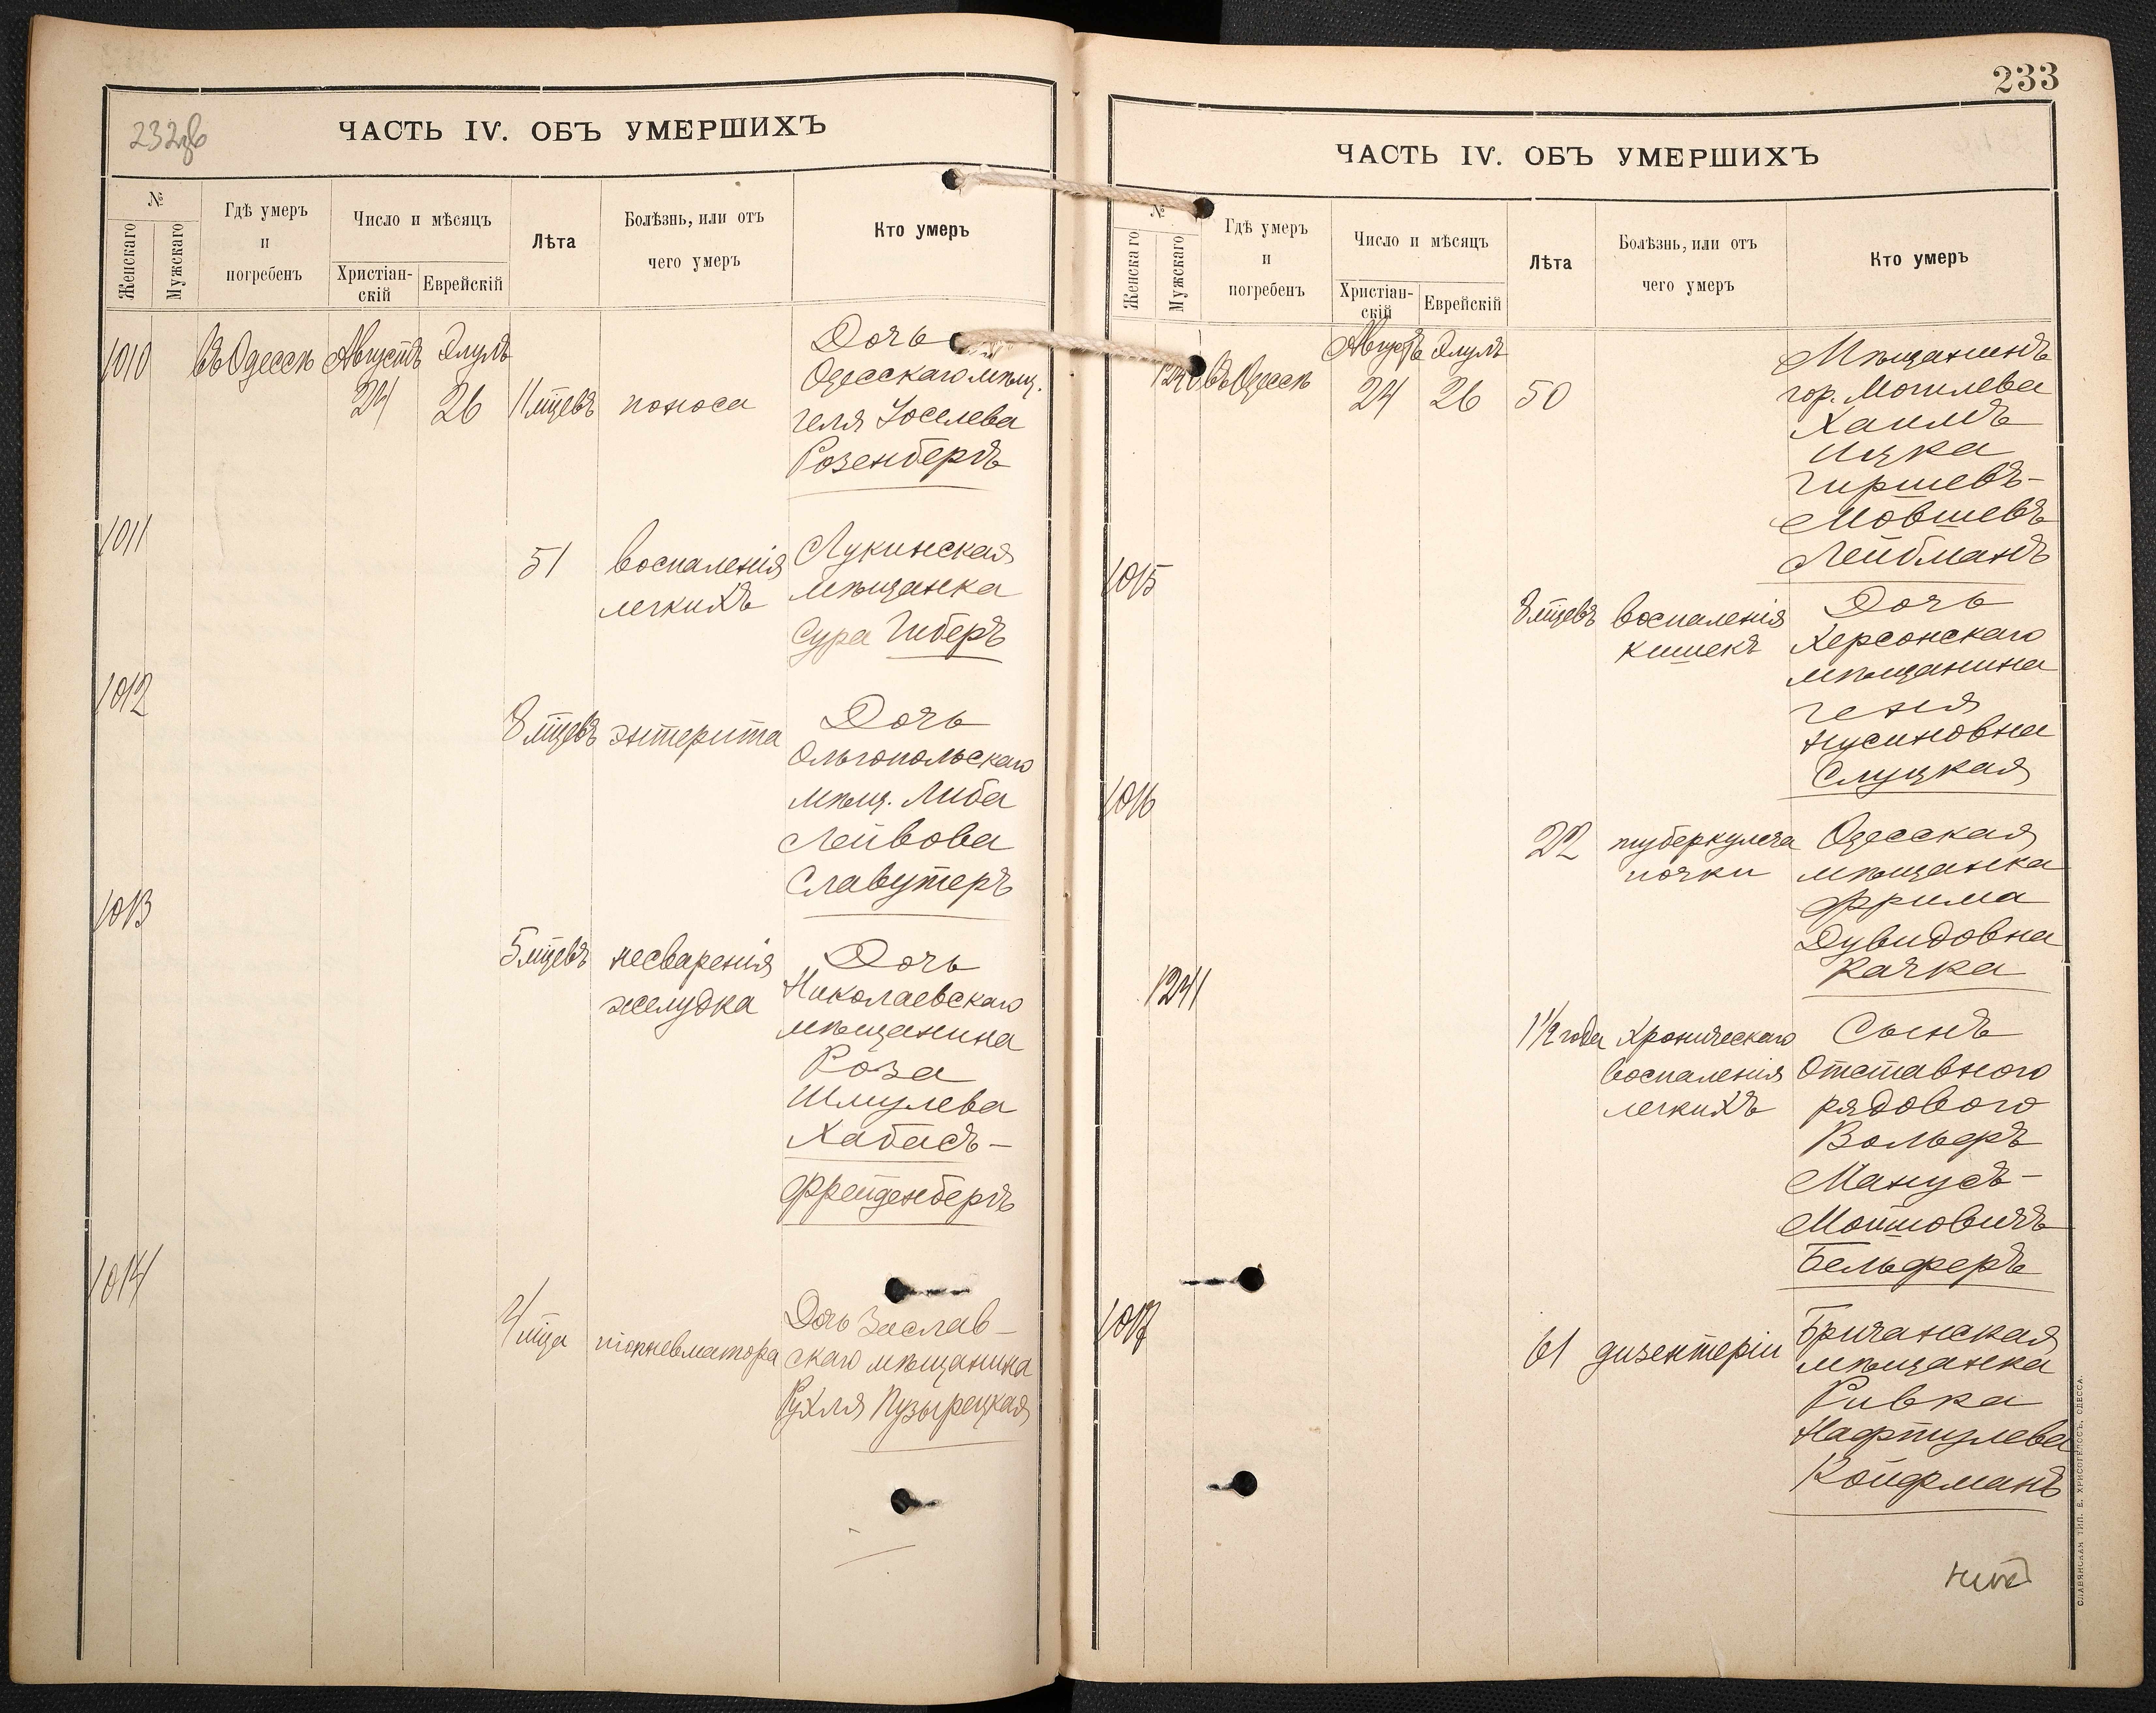 232об
ЧАСТЬ IV. ОБЪ УМЕРШИХЪ
№
Женскаго
Мужскаго
Гдѣ умеръ
и
погребенъ
Число и мѣсяцъ
Христіан-
скій
Еврейскій
Лѣта
Болѣзнь, или отъ
чего умеръ
Кто умеръ
1010
въ Одессѣ
Августъ
24
Элулъ
26
11 мцевъ
поноса
Дочь
Одесскаго мѣщ.
Геля Іоселева
Розенбергъ
1011
51
воспаленія
легкихъ
Лукинская
мѣщанка
Сура Гиберъ
1012
8 мцевъ
энтерита
Дочь
Ольгопольскаго
мѣщ. Либа
Лейвова
Славутеръ
1013
5 мцевъ
несваренія
желудка
Дочь
Николаевскаго
мѣщанина
Роза
Шмулева
Хабасъ-
Фрейденбергъ
1014
4 мца
Дочь Заслав-
скаго мѣщанина
Рухля Пузырецкая
233
ЧАСТЬ IV. ОБЪ УМЕРШИХЪ
№
Женскаго
Мужскаго
Гдѣ умеръ
и
погребенъ
Число и мѣсяцъ
Христіан-
скій
Еврейскій
Лѣта
Болѣзнь, или отъ
чего умеръ
Кто умеръ
1240
въ Одессѣ
Августъ
24
Элулъ
26
50
Мѣщанинъ
гор. Могилева
Хаимъ
Ицка
Гиршевъ-
Мовшевъ
Лейбманъ
1015
8 мцевъ
воспаленія
кишекъ
Дочь
Херсонскаго
мѣщанина
Геня
Нусиновна
Слуцкая
1016
22
туберкулеза
почки
Одесская
мѣщанка
Фрима
Дувидовна
Качка
1241
1 1/2 года
хроническаго
воспаленія
легкихъ
Сынъ
Отставного
рядового
Вольфъ
Манусъ-
Мойшовичъ
Бельферъ
1017
61
дизентеріи
Бричанская
мѣщанка
Ривка
Нафтулева
Койфманъ
СЛАВЯНСКАЯ ТИП. Е. ХРИСОГЕЛОСЪ, ОДЕССА.